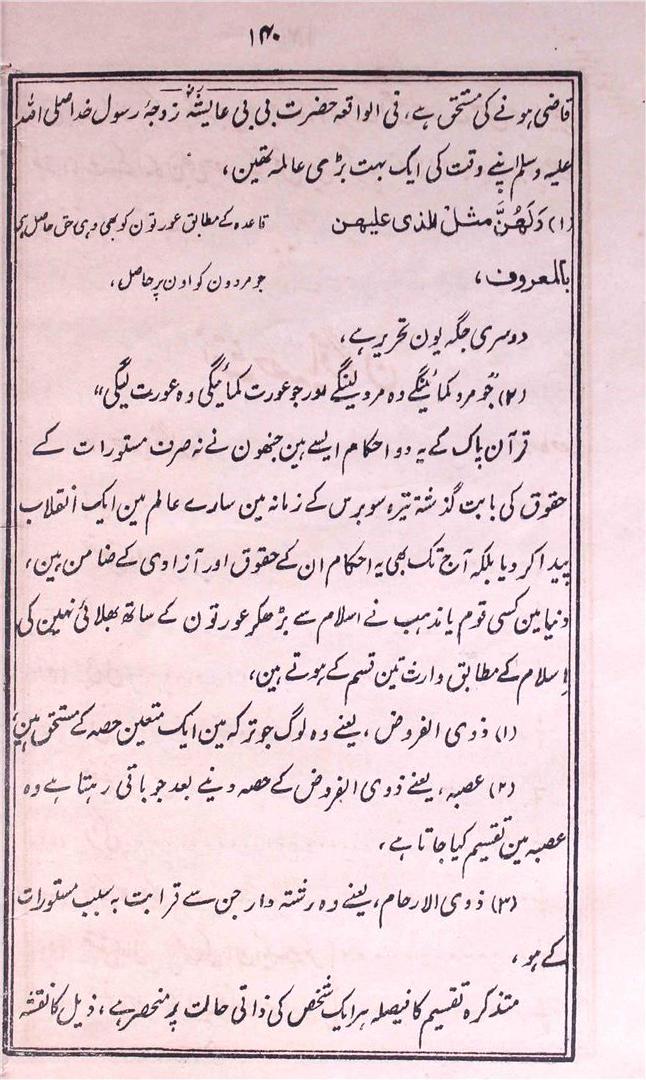 ۱۴۰
قاضی ہونے کی مستحق ہے، فی الواقعہ حضرت بی بی عایشہؓ زوجۂ رسول خدا صلی اللہ
علیہ وسلم اپنے وقت کی ایک بہت بڑی عالمہ تھین،
(۱) وَلَھُنَّ مثل الذی علیھن قاعدہ کے مطابق عورتون کو بھی وہی حق حاصل ہے
بالمعروف، جو مردون کو اون پر حاصل،
دوسری جگہ یون تحریر ہے،
(۲) "جو مرد کمائینگے وہ مرد لینگے اور جو عورت کمائیگی وہ عورت لیگی"
قرآن پاک کے یہ دو احکام ایسے ہین جنھون نے نہ صرف مستورات کے
حقوق کی بابت گذشتہ تیرہ سو برس کے زمانہ مین سارے عالم مین ایک انقلاب
پیدا کر دیا بلکہ آج تک بھی یہ احکام ان کے حقوق اور آزادی کے ضامن ہین،
دنیا مین کسی قوم یا مذہب نے اسلام سے بڑھکر عورتون کے ساتھ بھلائی نہین کی
اسلام کے مطابق وارث تین قسم کے ہوتے ہین،
(۱) ذوی الفروض، یعنے وہ لوگ جو ترکہ مین ایک متعین حصہ کے مستحق ہین،
(۲) عصبہ، یعنے ذوی الفروض کے حصہ دینے بعد جو باقی رہتا ہے وہ
عصبہ مین تقسیم کیا جاتا ہے،
(۳) ذوی الارحام، یعنے وہ رشتہ دار جن سے قرابت بہ سبب مستورات
کے ہو،
متذکرہ تقسیم کا فیصلہ ہر ایک شخص کی ذاتی حالت پر منحصر ہے، ذیل کا نقشہ